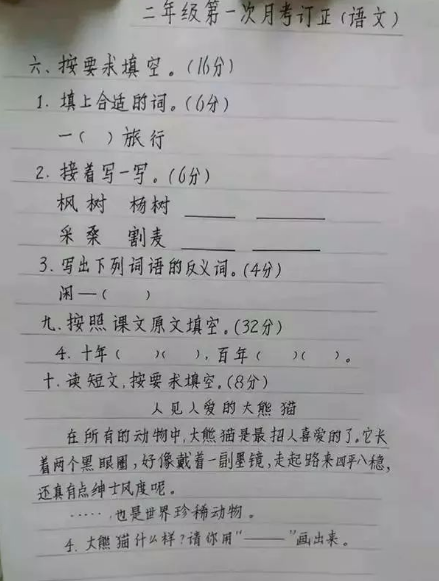 二年级第一次月考订正(语文)
六、按要求填空。(16分)
1. 填上合适的词。(6分)
一( )旅行
2. 接着写一写。(6分)
枫树 杨树 ____ ____
采桑 割麦 ____ ____
3. 写出下列词语的反义词。(4分)
闲—( )
九、按照课文原文填空。(32分)
4. 十年( )( ),百年( )( )。
十、读短文,按要求填空。(8分)
人见人爱的大熊猫
在所有的动物中,大熊猫是最招人喜爱的了。它长
着两个黑眼圈,好像戴着一副墨镜,走起路来四平八稳,
还真有点绅士风度呢。
……,也是世界珍稀动物。
4. 大熊猫什么样?请你用"——"画出来。